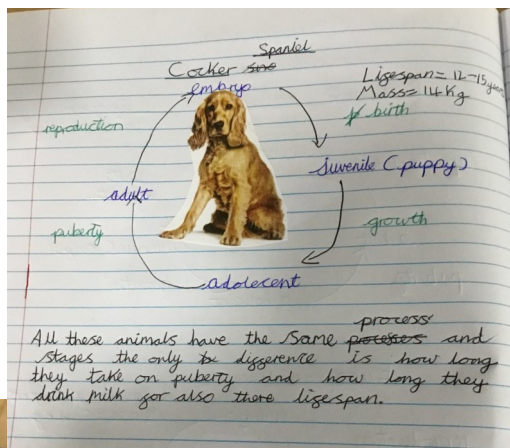 Spaniel
Cocker
embryo
Lifespan = 12-15 years
Mass = 14 Kg
birth
reproduction
juvenile (puppy)
adult
growth
puberty
adolecent
process
All these animals have the same processes and
stages the only difference is how long
they take on puberty and how long they
drink milk for also there lifespan.